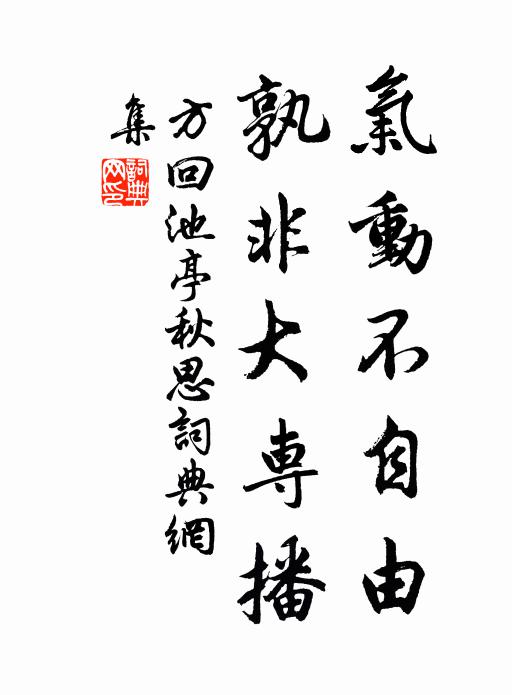 氣動不自由
孰非大専播
方回池亭秋思詞典網
集
詞典网印